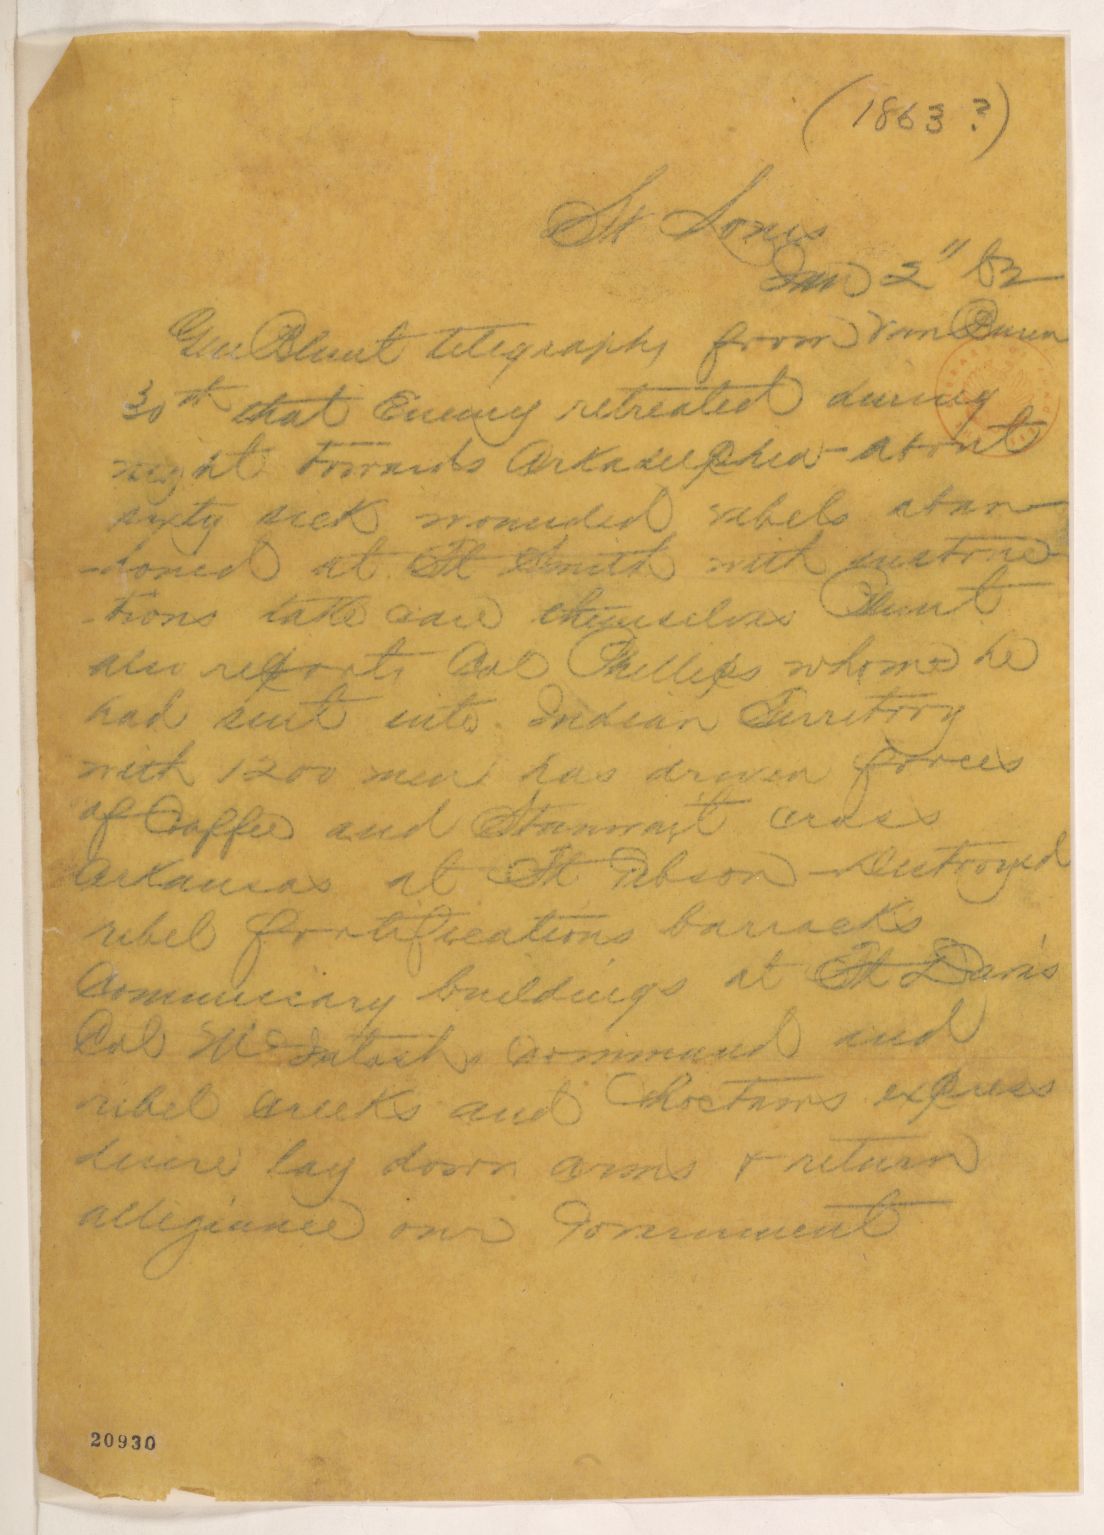 (1863?)
St Louis
Jan 2" 62
Gen Blunt telegraphs from Van Buren
30th that Enemy retreated during
night towards Arkadelphia - about
sixty sick wounded rebels aban-
-doned at Ft Smith with instruc-
-tions take care themselves Blunt
also reports Col Phillips whom he
had sent into Indian Territory
with 1200 men has driven forces
of Coffee and Stanwait cross
Arkansas at Ft Gibson - Destroyed
rebel fortifications barracks
Commissary buildings at Ft Davis
Col McIntosh's command and
rebel Creeks and Choctaws express
desire lay down arms & return
allegiance our Government
20930